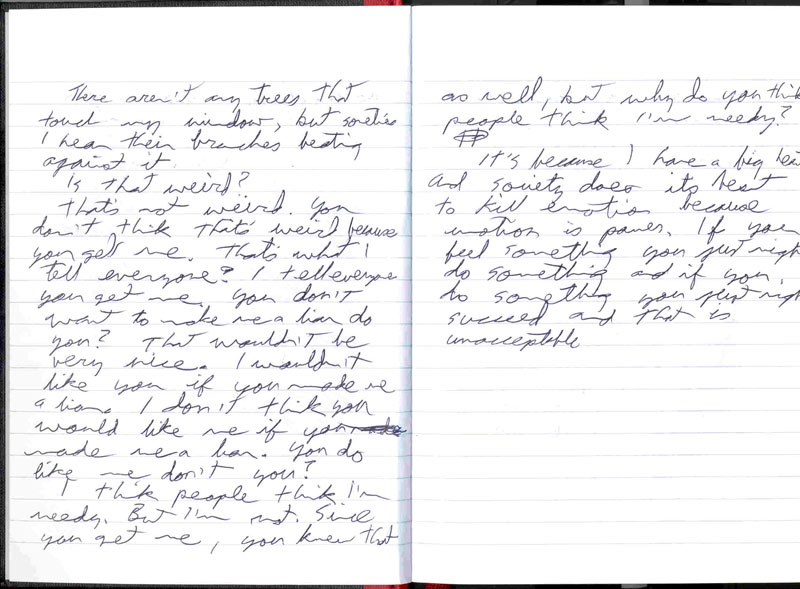 There aren't any trees that
touch my window, but sometimes
I hear their branches beating
against it.
Is that weird?
That's not weird. You
don't think that's weird because
you get me. That's what I
tell everyone? I tell everyone
you get me. You don't
want to make me a liar do
you? That wouldn't be
very nice. I wouldn't
like you if you made me
a liar. I don't think you
would like me if you
made me a liar. You do
like me don't you?
I think people think I'm
needy. But I'm not. Since
you get me, you knew that
as well, but why do you think
people think I'm needy?
It's because I have a big heart
and society does its best
to kill emotion because
emotion is power. If you
feel something you just might
do something and if you
do something you just might
succeed and that is
unacceptable